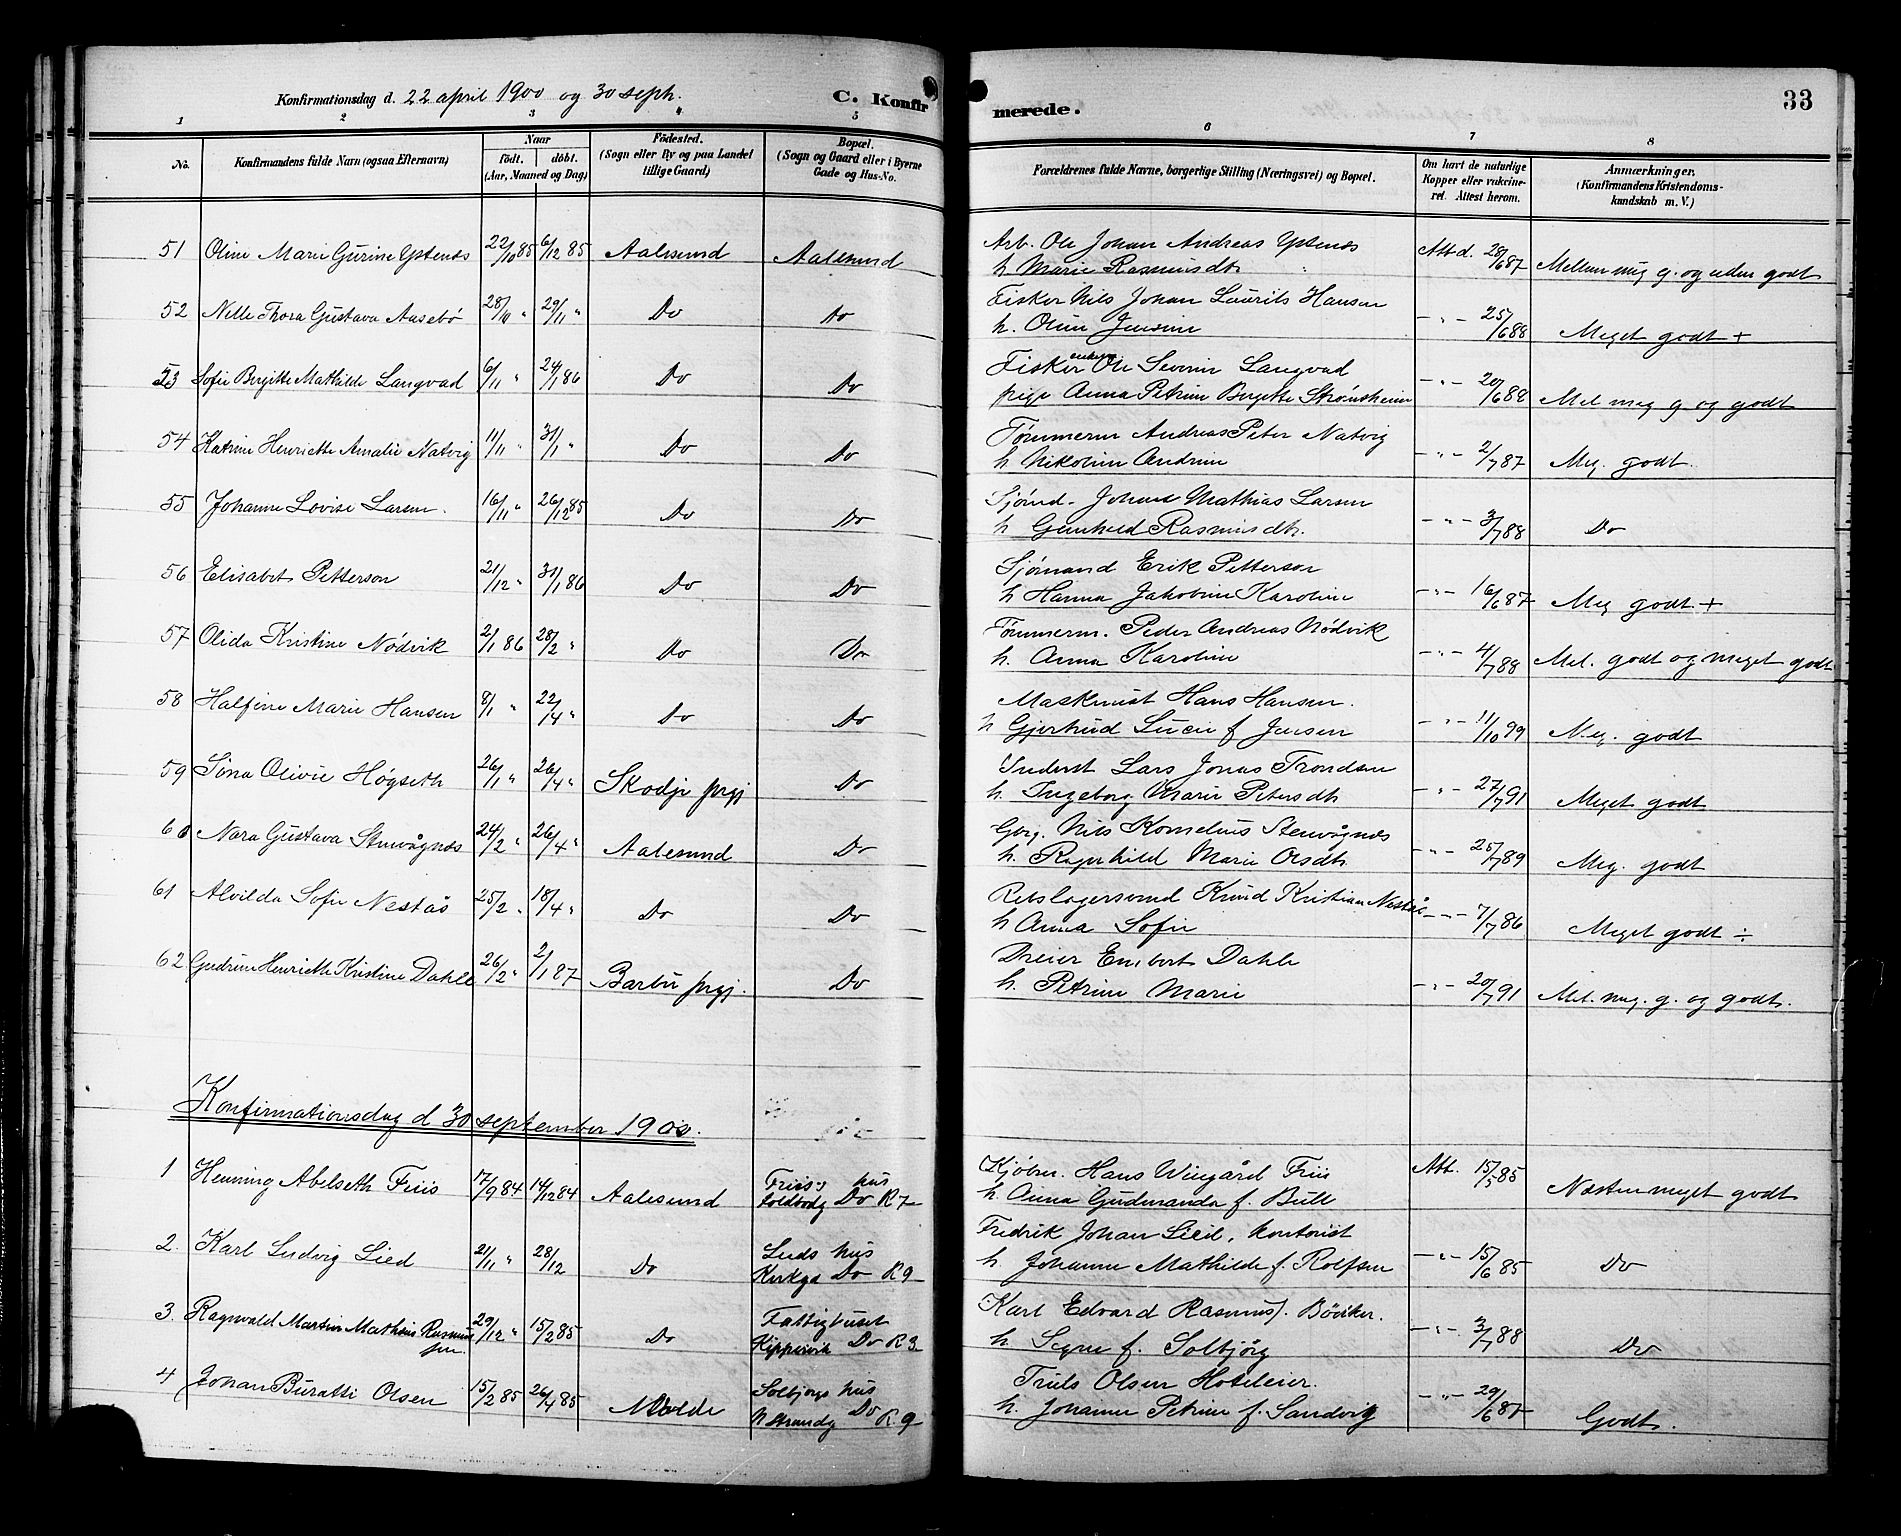 33
Konfirmationsdag d. 22 april 1900 og 30 septr. C. Konfirmerede.
1 2 3 4 5 6 7 8
No. Konfirmandens fulde Navn (ogsaa Efternavn) Naar født. døbt. (Aar, Maaned og Dag) Fødested. (Sogn eller By og paa Landet tillige Gaard) Bopæl. (Sogn og Gaard eller i Byerne Gade og Hus-No. Forældrenes fulde Navne, borgerlige Stilling (Næringsvei) og Bopæl. Om havt de naturlige Kopper eller vakcineret. Attest herom. Anmærkninger. (Konfirmandens Kristendomskundskab m. V.)
51 Oline Marie Gurine Ystenes 22/10 85 6/12 85 Aalesund Aalesund Arb. Ole Johan Andreas Ystenes Att d. 28/6 87 Mellem meg g. og uden godt
h. Marie Rasmusdtr
52 Nille Thora Gustava Aasebø 28/10 " 29/11 " Do Do Fisker Nils Johan Laurits Hansen -"- 25/6 88 Meget godt +
h. Oline Jensine
53 Sofie Bergitte Mathilde Langvad 6/11 " 24/1 86 Do Do Fisker Ole Severin Langvad -"- 20/6 88 Mel meg g. og godt
pige Anna Petrine Bergitte Strømsheim
54 Katrine Henriette Amalie Natvig 11/11 " 31/1 " Do Do Tømmerm Andreas Peter Natvig -"- 2/7 87 Meg. godt.
h Nikoline Andrine
55 Johanne Lovise Larsen. 16/11 " 26/12 85 Do Do Sjømd. Johan Mathias Larsen -"- 3/7 88 Do
h Gunhild Rasmusdtr.
56 Elisabet Petterson 21/12 " 31/1 86 Do Do Sjømand Erik Petterson -"- 16/6 87 Meg godt +
h Hanna Jakobine Karoline
57 Olida Kristine Nødvik 2/1 86 28/2 " Do Do Tømmerm. Peder Andreas Nødvik -"- 4/7 88 Mel. godt og meget godt
h. Anna Karoline
58 Halfine Marie Hansen 8/1 " 22/4 " Do Do Maskinist Hans Hansen. -"- 11/10 99 Meg. godt
h Gjertrud Lucie f Jensen
59 Søna Olivie Høgseth 26/1 " 26/4 " Skodje prgj Do Inderst Lars Jonas Trondsen -"- 27/7 91 Meget godt
h. Ingeborg Marie Petersdtr
60 Nora Gustava Stenvågnæs 24/2 " 26/4 " Aalesund Do Gbrg. Nils Kornelius Stenvågnæs -"- 25/7 89 Meg. godt
h. Ragnhild Marie Olsdtr.
61 Alvilda Sofie Nestås 25/2 " 18/4 " Do Do Rebslagersvend Knud Kristian Nestås -"- 7/7 86 Meget godt ÷
h Anna Sofie
62 Gudrun Henriette Kristine Dahle 26/2 " 2/1 87 Barbu prgj. Do Dreier Embert Dahle -"- 20/7 91 Mel. meg. g. og godt.
h. Petrine Marie
Konfirmationsdag d 30 september 1900.
1 Henning Abelseth Friis 17/9 84 14/12 84 Aalesund Friis's hus Toldbodg Do R 7 Kjøbm. Hans Wingård Friis Att. 15/5 85 Næsten meget godt
h. Anna Gudmanda f. Bull
2. Karl Ludvig Lied 21/11 " 28/12 Do Lieds hus Kirkga Do R 9 Fredrik Johan Lied, kontorist -"- 15/6 85 Do
h. Johanne Mathilde f. Rolfsen
3. Ragnvald Martin Mathias Rasmussen. 29/12 " 15/2 85 Do Fattighuset Kippervik Do R 3 Karl Edvard Rasmuss. Bødker. -"- 3/7 88 Do
h. Signe f. Solbjørg
4 Johan Buratti Olsen 15/2 85 26/4 85 Molde Solbjørgs hus N strandg Do R 9 Truls Olsen Hoteleier. -"- 29/6 87 Godt.
h. Johanne Petrine f. Sandvig